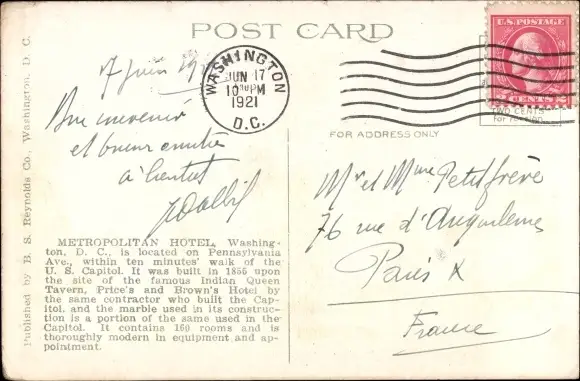 POST CARD
U.S. POSTAGE
2 CENTS 2
WASHINGTON
JUN 17
10 PM
1921
D.C.
TWO CENTS
for foreign
FOR ADDRESS ONLY
7 Juin
Bon souvenir
et bonne amitié
à bientôt
Mr et Mme Petitfrère
76 rue d'Angoulême
Paris X
France
METROPOLITAN HOTEL, Washing-
ton, D. C., is located on Pennsylvania
Ave., within ten minutes' walk of the
U. S. Capitol. It was built in 1856 upon
the site of the famous Indian Queen
Tavern, Price's and Brown's Hotel by
the same contractor who built the Cap-
itol, and the marble used in its construc-
tion is a portion of the same used in the
Capitol. It contains 160 rooms and is
thoroughly modern in equipment and ap-
pointment.
Published by B. S. Reynolds Co., Washington, D. C.